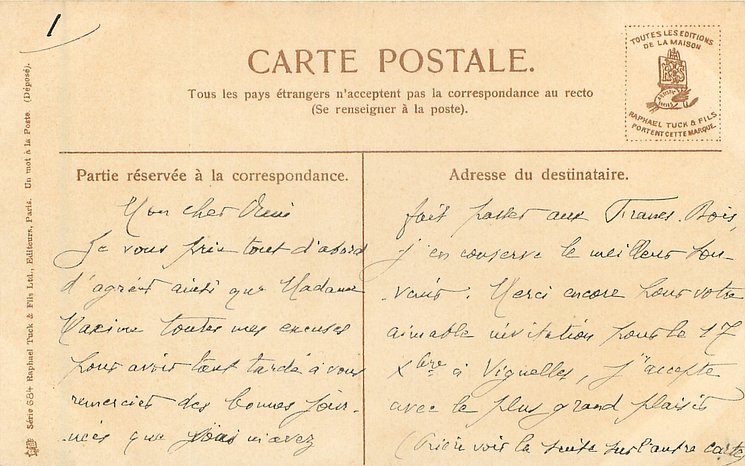 1
CARTE POSTALE.
Tous les pays étrangers n'acceptent pas la correspondance au recto
(Se renseigner à la poste).
TOUTES LES EDITIONS
DE LA MAISON
RAPHAEL TUCK & FILS
PORTENT CETTE MARQUE
Série 684 Raphael Tuck & Fils Ltd., Editeurs, Paris. Un mot à la Poste. (Déposé).
Partie réservée à la correspondance.
Mon cher Ami
Je vous prie tout d'abord
d'agréer ainsi que Madame
Maxime toutes mes excuses
pour avoir tant tardé à vous
remercier des bonnes jour-
-nées que vous m'avez
Adresse du destinataire.
fait passer aux Francs-Bois,
j'en conserve le meilleur sou-
venir. Merci encore pour votre
aimable invitation pour le 17
Xbre à Vignelles, j'accepte
avec le plus grand plaisir
(Prière voir la suite sur l'autre carte)